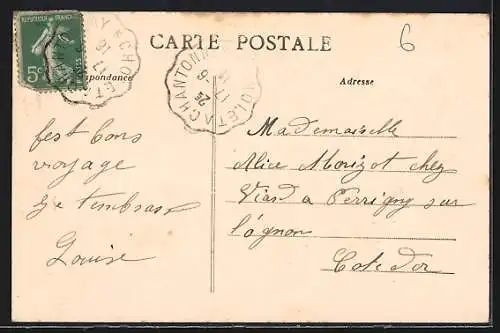 REPUBLIQUE FRANCAISE
5c
POSTES
CARTE POSTALE
Correspondance
Adresse
6
CHOLET A CHANTONNAY
2E
17 -6
fest bons
voyage
je tembrass
Louise
Mademoiselle
Alice Morizot chez
Viard a Perrigny sur
l'ôgnon
Cote d'or